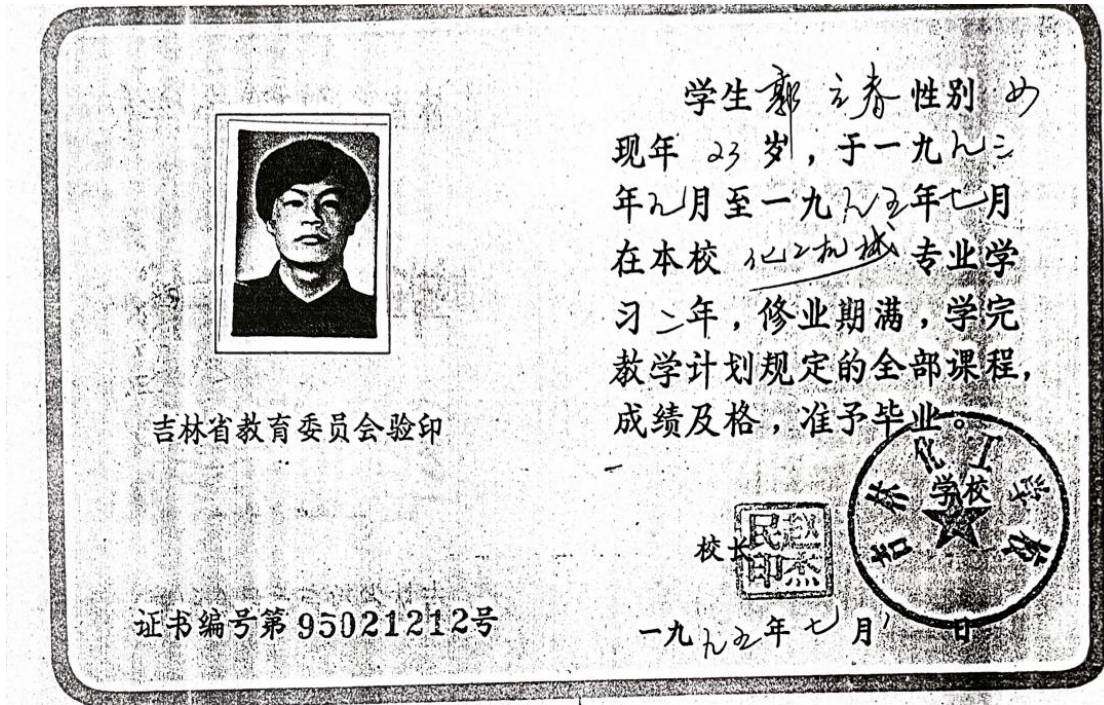 吉林省教育委员会验印
证书编号第95021212号
学生郭立春性别 女
现年 23 岁，于一九九三
年九月至一九九五年七月
在本校 化工机械 专业学
习二年，修业期满，学完
教学计划规定的全部课程，
成绩及格，准予毕业。
吉林化工学校
学校
校长
民印
杰
一九九五年七月 日